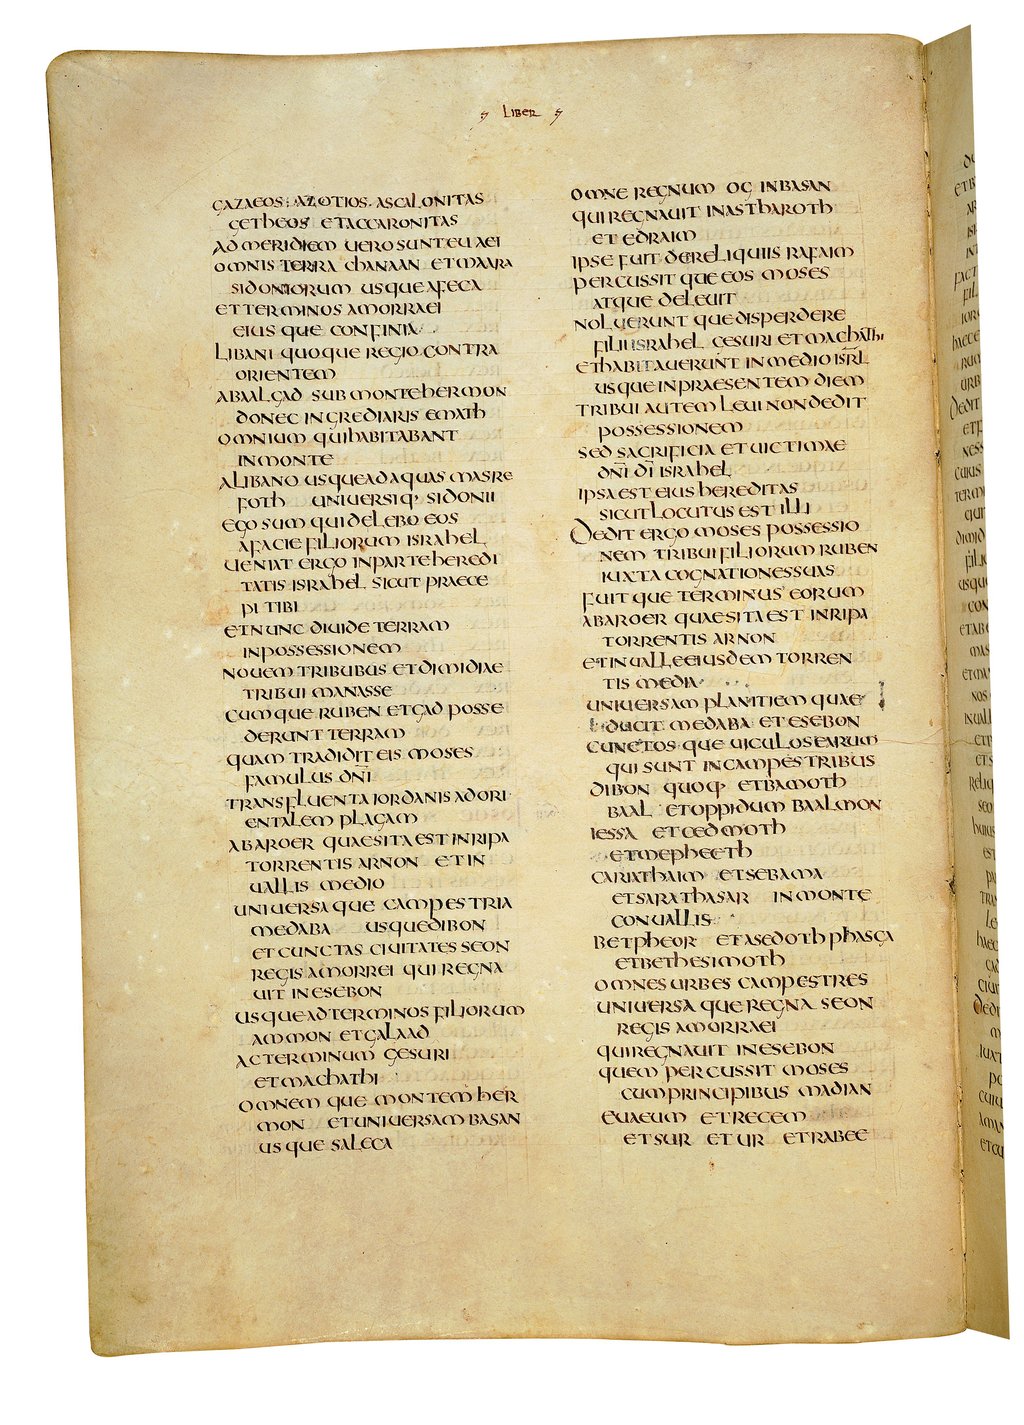 LIBER
GAZAEOS · AZOTIOS · ASCALONITAS
GETHEOS ET ACCARONITAS
AD MERIDIEM UERO SUNT EUAEI
OMNIS TERRA CHANAAN ET MAARA
SIDONIORUM USQUE AFECA
ET TERMINOS AMORRAEI
EIUSQUE CONFINIA
LIBANI QUOQUE REGIO CONTRA
ORIENTEM
A BAALGAD SUB MONTE HERMON
DONEC INGREDIARIS EMATH
OMNIUM QUI HABITABANT
IN MONTE
A LIBANO USQUE AD AQUAS MASRE
FOTH UNIUERSIQ· SIDONII
EGO SUM QUI DELEBO EOS
A FACIE FILIORUM ISRAHEL
UENIAT ERGO IN PARTE HEREDI
TATIS ISRAHEL SICUT PRAECE
PI TIBI
ET NUNC DIUIDE TERRAM
IN POSSESSIONEM
NOUEM TRIBUBUS ET DIMIDIAE
TRIBUI MANASSE
CUM QUE RUBEN ET GAD POSSE
DERUNT TERRAM
QUAM TRADIDIT EIS MOSES
FAMULUS DNI
TRANS FLUENTA IORDANIS AD ORI
ENTALEM PLAGAM
AB AROER QUAE SITA EST IN RIPA
TORRENTIS ARNON ET IN
UALLIS MEDIO
UNIUERSAQUE CAMPESTRIA
MEDABA USQUE DIBON
ET CUNCTAS CIUITATES SEON
REGIS AMORREI QUI REGNA
UIT IN ESEBON
USQUE AD TERMINOS FILIORUM
AMMON ET GALAAD
AC TERMINUM GESURI
ET MACHATHI
OMNEMQUE MONTEM HER
MON ET UNIUERSAM BASAN
USQUE SALECA
OMNE REGNUM OG IN BASAN
QUI REGNAUIT IN ASTHAROTH
ET EDRAIM
IPSE FUIT DE RELIQUIIS RAFAIM
PERCUSSITQUE EOS MOSES
ATQUE DELEUIT
NOLUERUNTQUE DISPERDERE
FILII ISRAHEL GESURI ET MACHATHI
ET HABITAUERUNT IN MEDIO ISRL
USQUE IN PRAESENTEM DIEM
TRIBUI AUTEM LEUI NON DEDIT
POSSESSIONEM
SED SACRIFICIA ET UICTIMAE
DNI DI ISRAHEL
IPSA EST EIUS HEREDITAS
SICUT LOCUTUS EST ILLI
DEDIT ERGO MOSES POSSESSIO
NEM TRIBUI FILIORUM RUBEN
IUXTA COGNATIONES SUAS
FUITQUE TERMINUS EORUM
AB AROER QUAE SITA EST IN RIPA
TORRENTIS ARNON
ET IN UALLE EIUSDEM TORREN
TIS MEDIA
UNIUERSAM PLANITIEM QUAE
DUCIT MEDABA ET ESEBON
CUNCTOSQUE UICULOS EARUM
QUI SUNT IN CAMPESTRIBUS
DIBON QUOQ· ET BAMOTH
BAAL ET OPPIDUM BAALMON
IESSA ET CEDMOTH
ET MEPHEETH
CARIATHAIM ET SEBAMA
ET SARATHASAR IN MONTE
CONUALLIS
BETPHEOR ET ASEDOTH PHASGA
ET BETHESIMOTH
OMNES URBES CAMPESTRES
UNIUERSAQUE REGNA SEON
REGIS AMORRAEI
QUI REGNAUIT IN ESEBON
QUEM PERCUSSIT MOSES
CUM PRINCIPIBUS MADIAN
EUAEUM ET RECEM
ET SUR ET UR ET RABEE